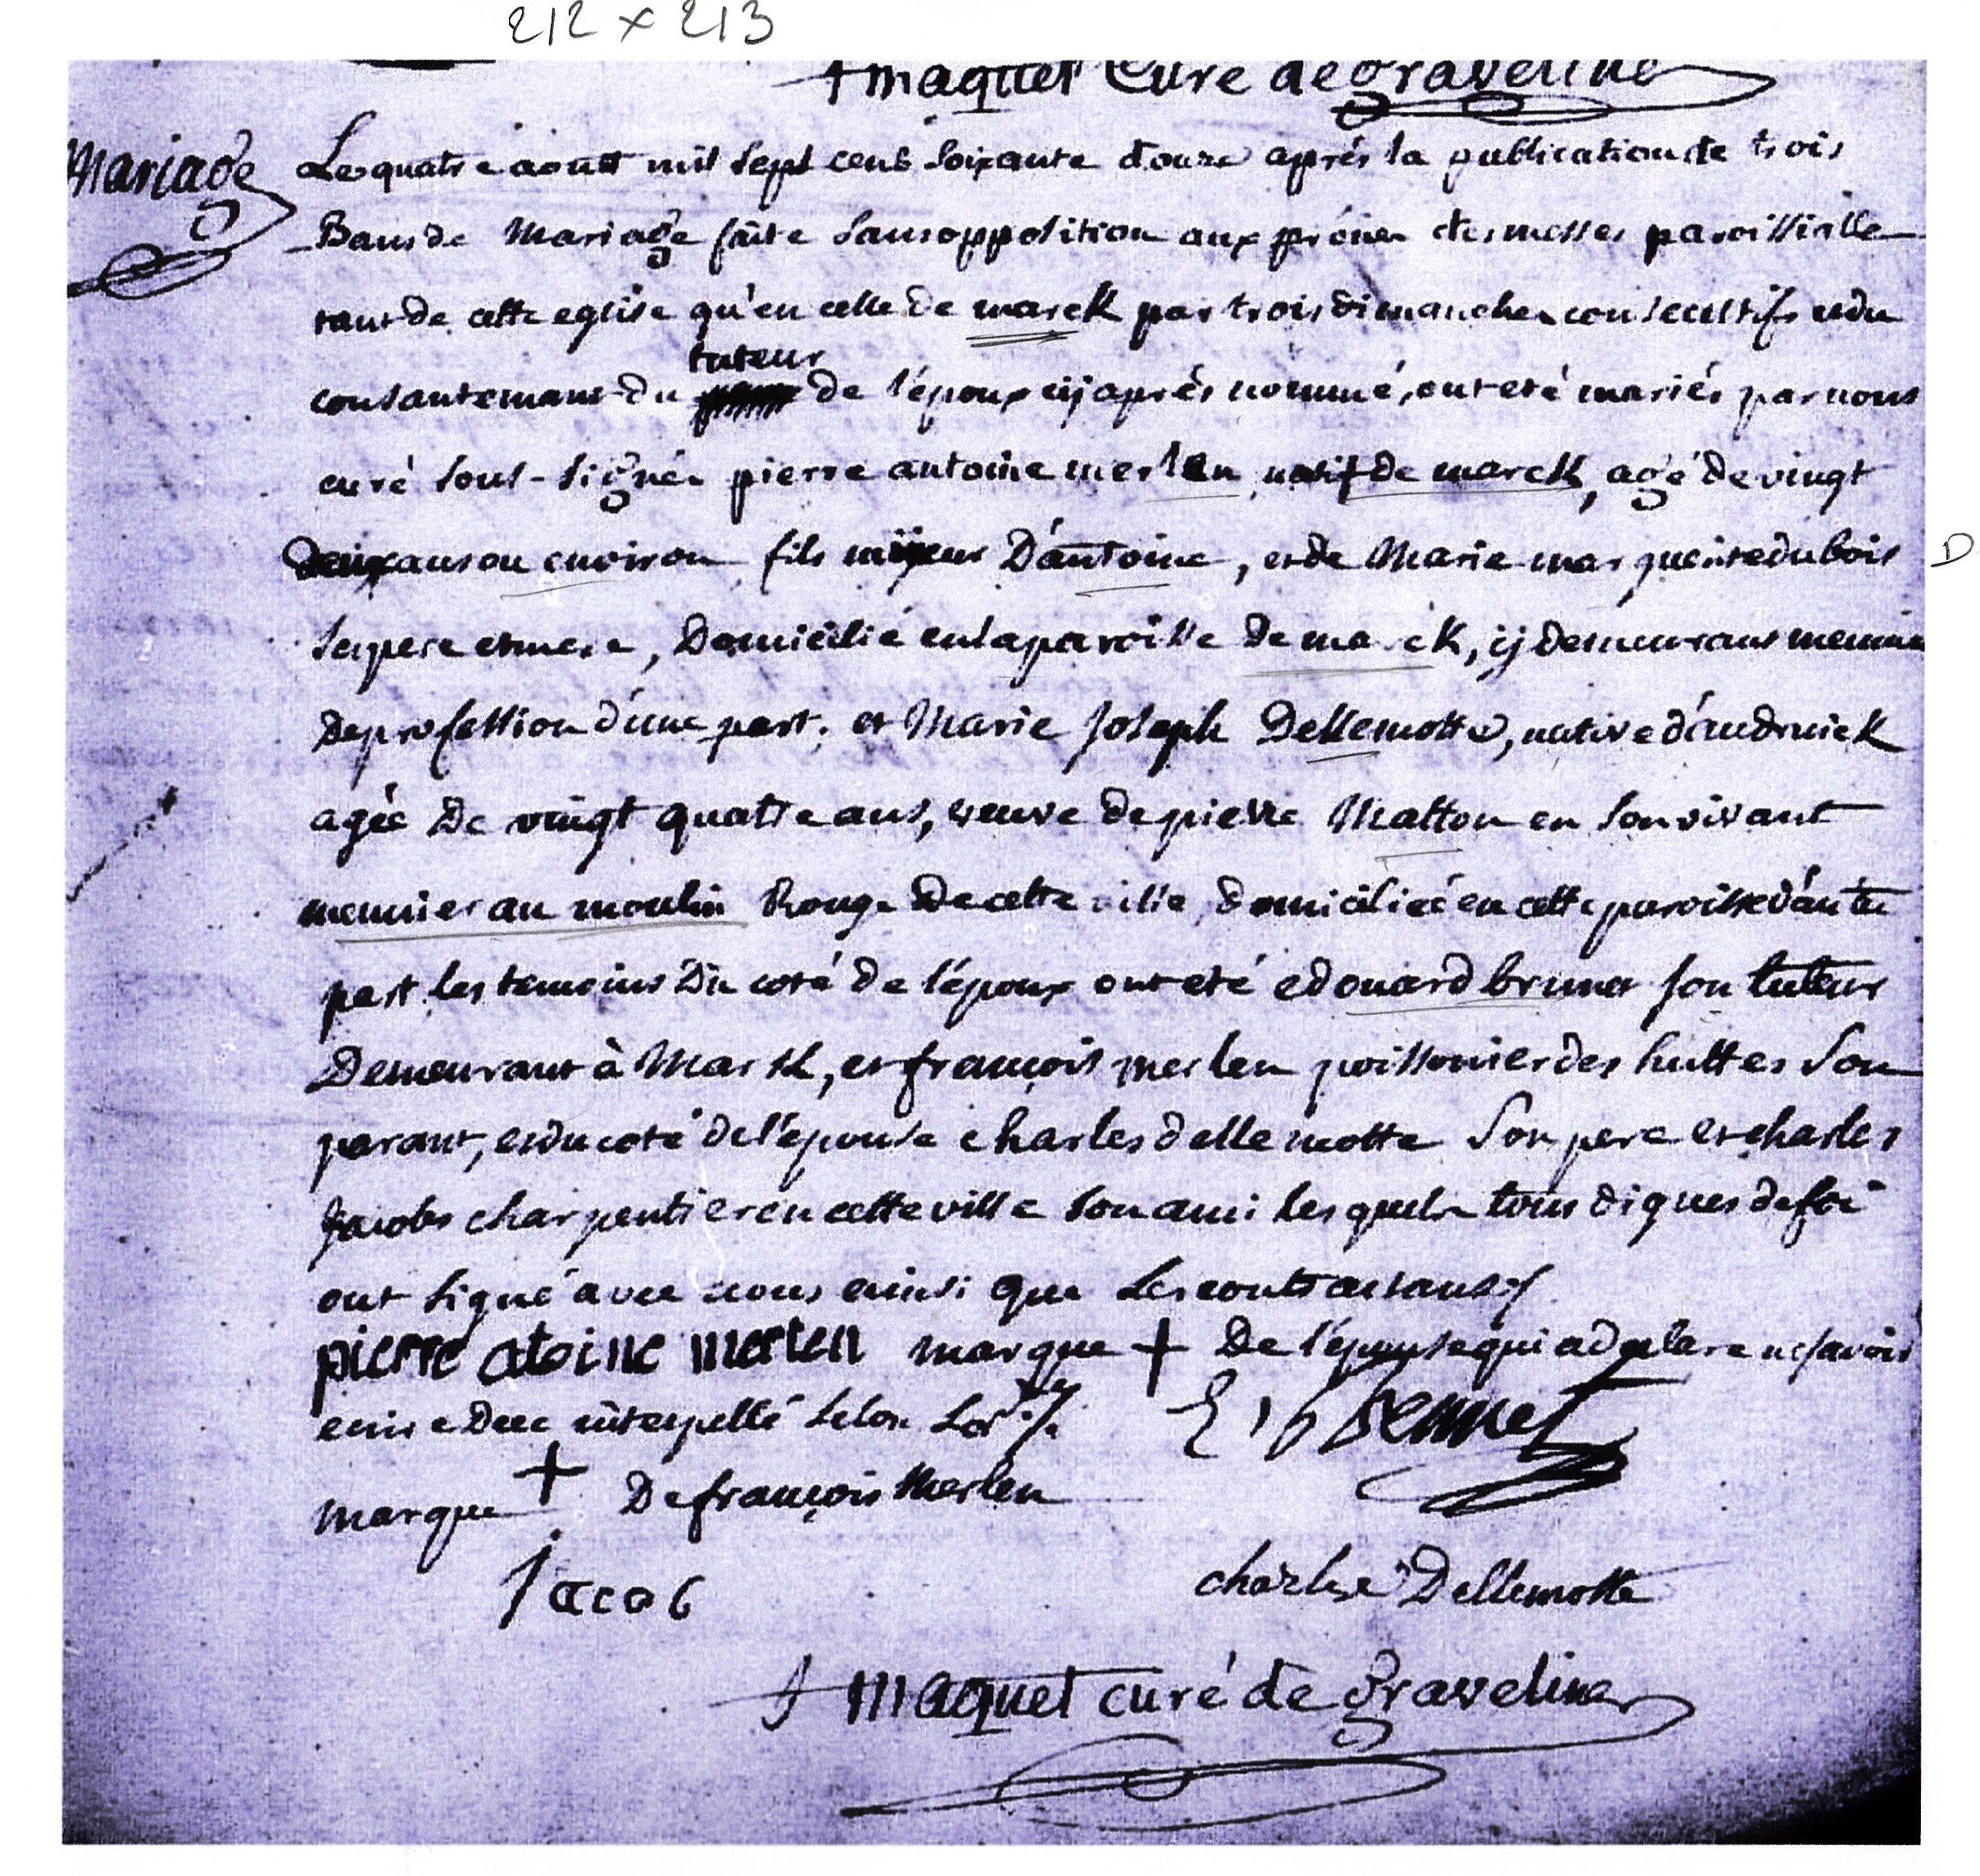 212 x 213
maquet Curé de graveline
Mariage
Le quatre aoust mil sept cens soixante douze après la publication de trois
Bans de Mariage faite sans opposition aux prônes des messes paroissialle
tant de cette eglise qu'en celle de marck par trois dimanches consecutifs et du
tuteur
consantemant du de l'époux cij après nommé, ont eté mariés par nous
curé sous-signée pierre antoine merlen natif de marck, agé de vingt
deux ans ou environ fils D'antoine, et de Marie marguerite dubois D
ses pere et mere, Domicilié en la paroisse de marck, cij demeurant meunie
De profession d'une part, et Marie Joseph Dellemotte, native d'audruick
agée De vingt quatre ans, veuve de pierre Matton en son vivant
meunier au moulin Rouge De cette ville, domiciliée en cette paroisse d'autre
part. les temoins Du coté de l'époux ont eté edouard brunet son tuteur
Demeurant à Marck, et françois merlen poissonier des huttes son
parant, et du coté de l'épouse charles dellemotte son pere et charles
jacobs charpentier en cette ville son ami lesquels tous dignes de foi
ont signé avec nous ainsi que Les contractans
pierre atoine merlen marque + De l'épouse qui a declare ne savoir
ecrire De ce interpellé selon
marque + De françois Merlen
jacob
charles Dellemotte
maquet curé de graveline